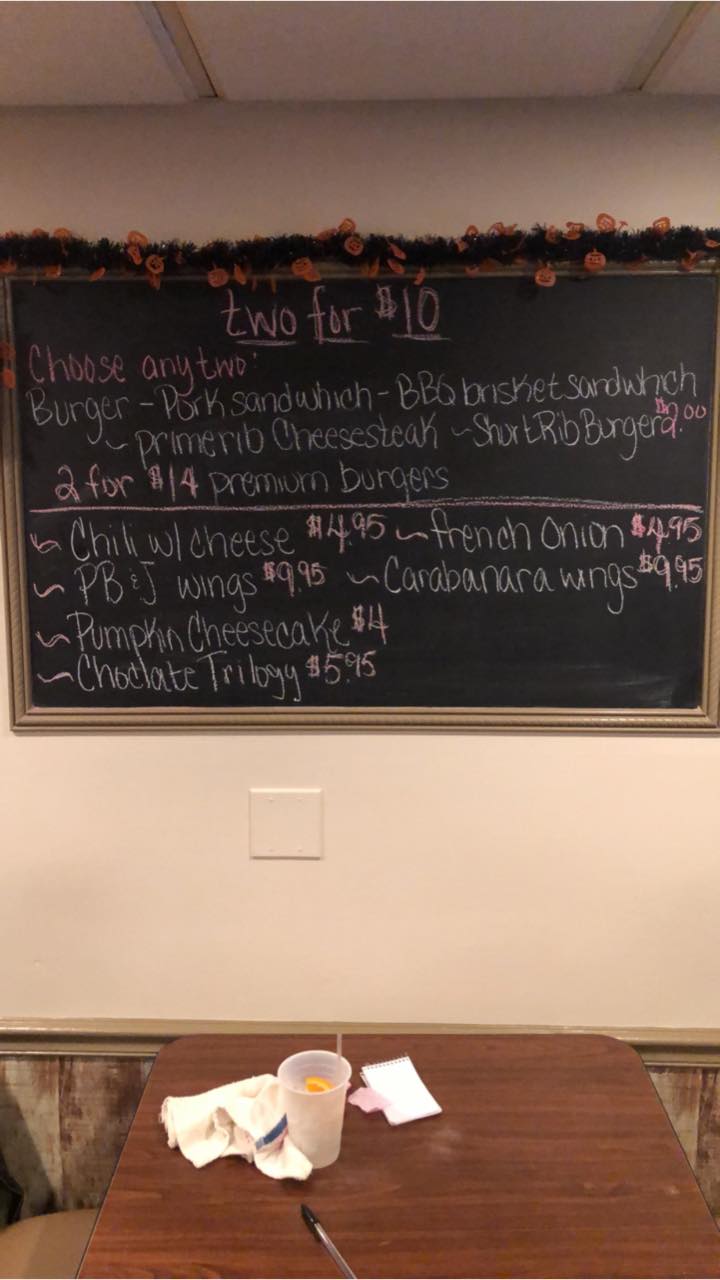 two for $10
Choose any two:
Burger - Pork sandwhich - BBQ brisket sandwhich
~ prime rib Cheesesteak ~ Short Rib Burger $2.00
2 for $14 premium burgers
~ Chili w/ cheese $4.95 ~ french Onion $4.95
~ PB & J wings $9.95 ~ Carabanara wings $9.95
~ Pumpkin Cheesecake $4
~ Choclate Trilogy $5.95